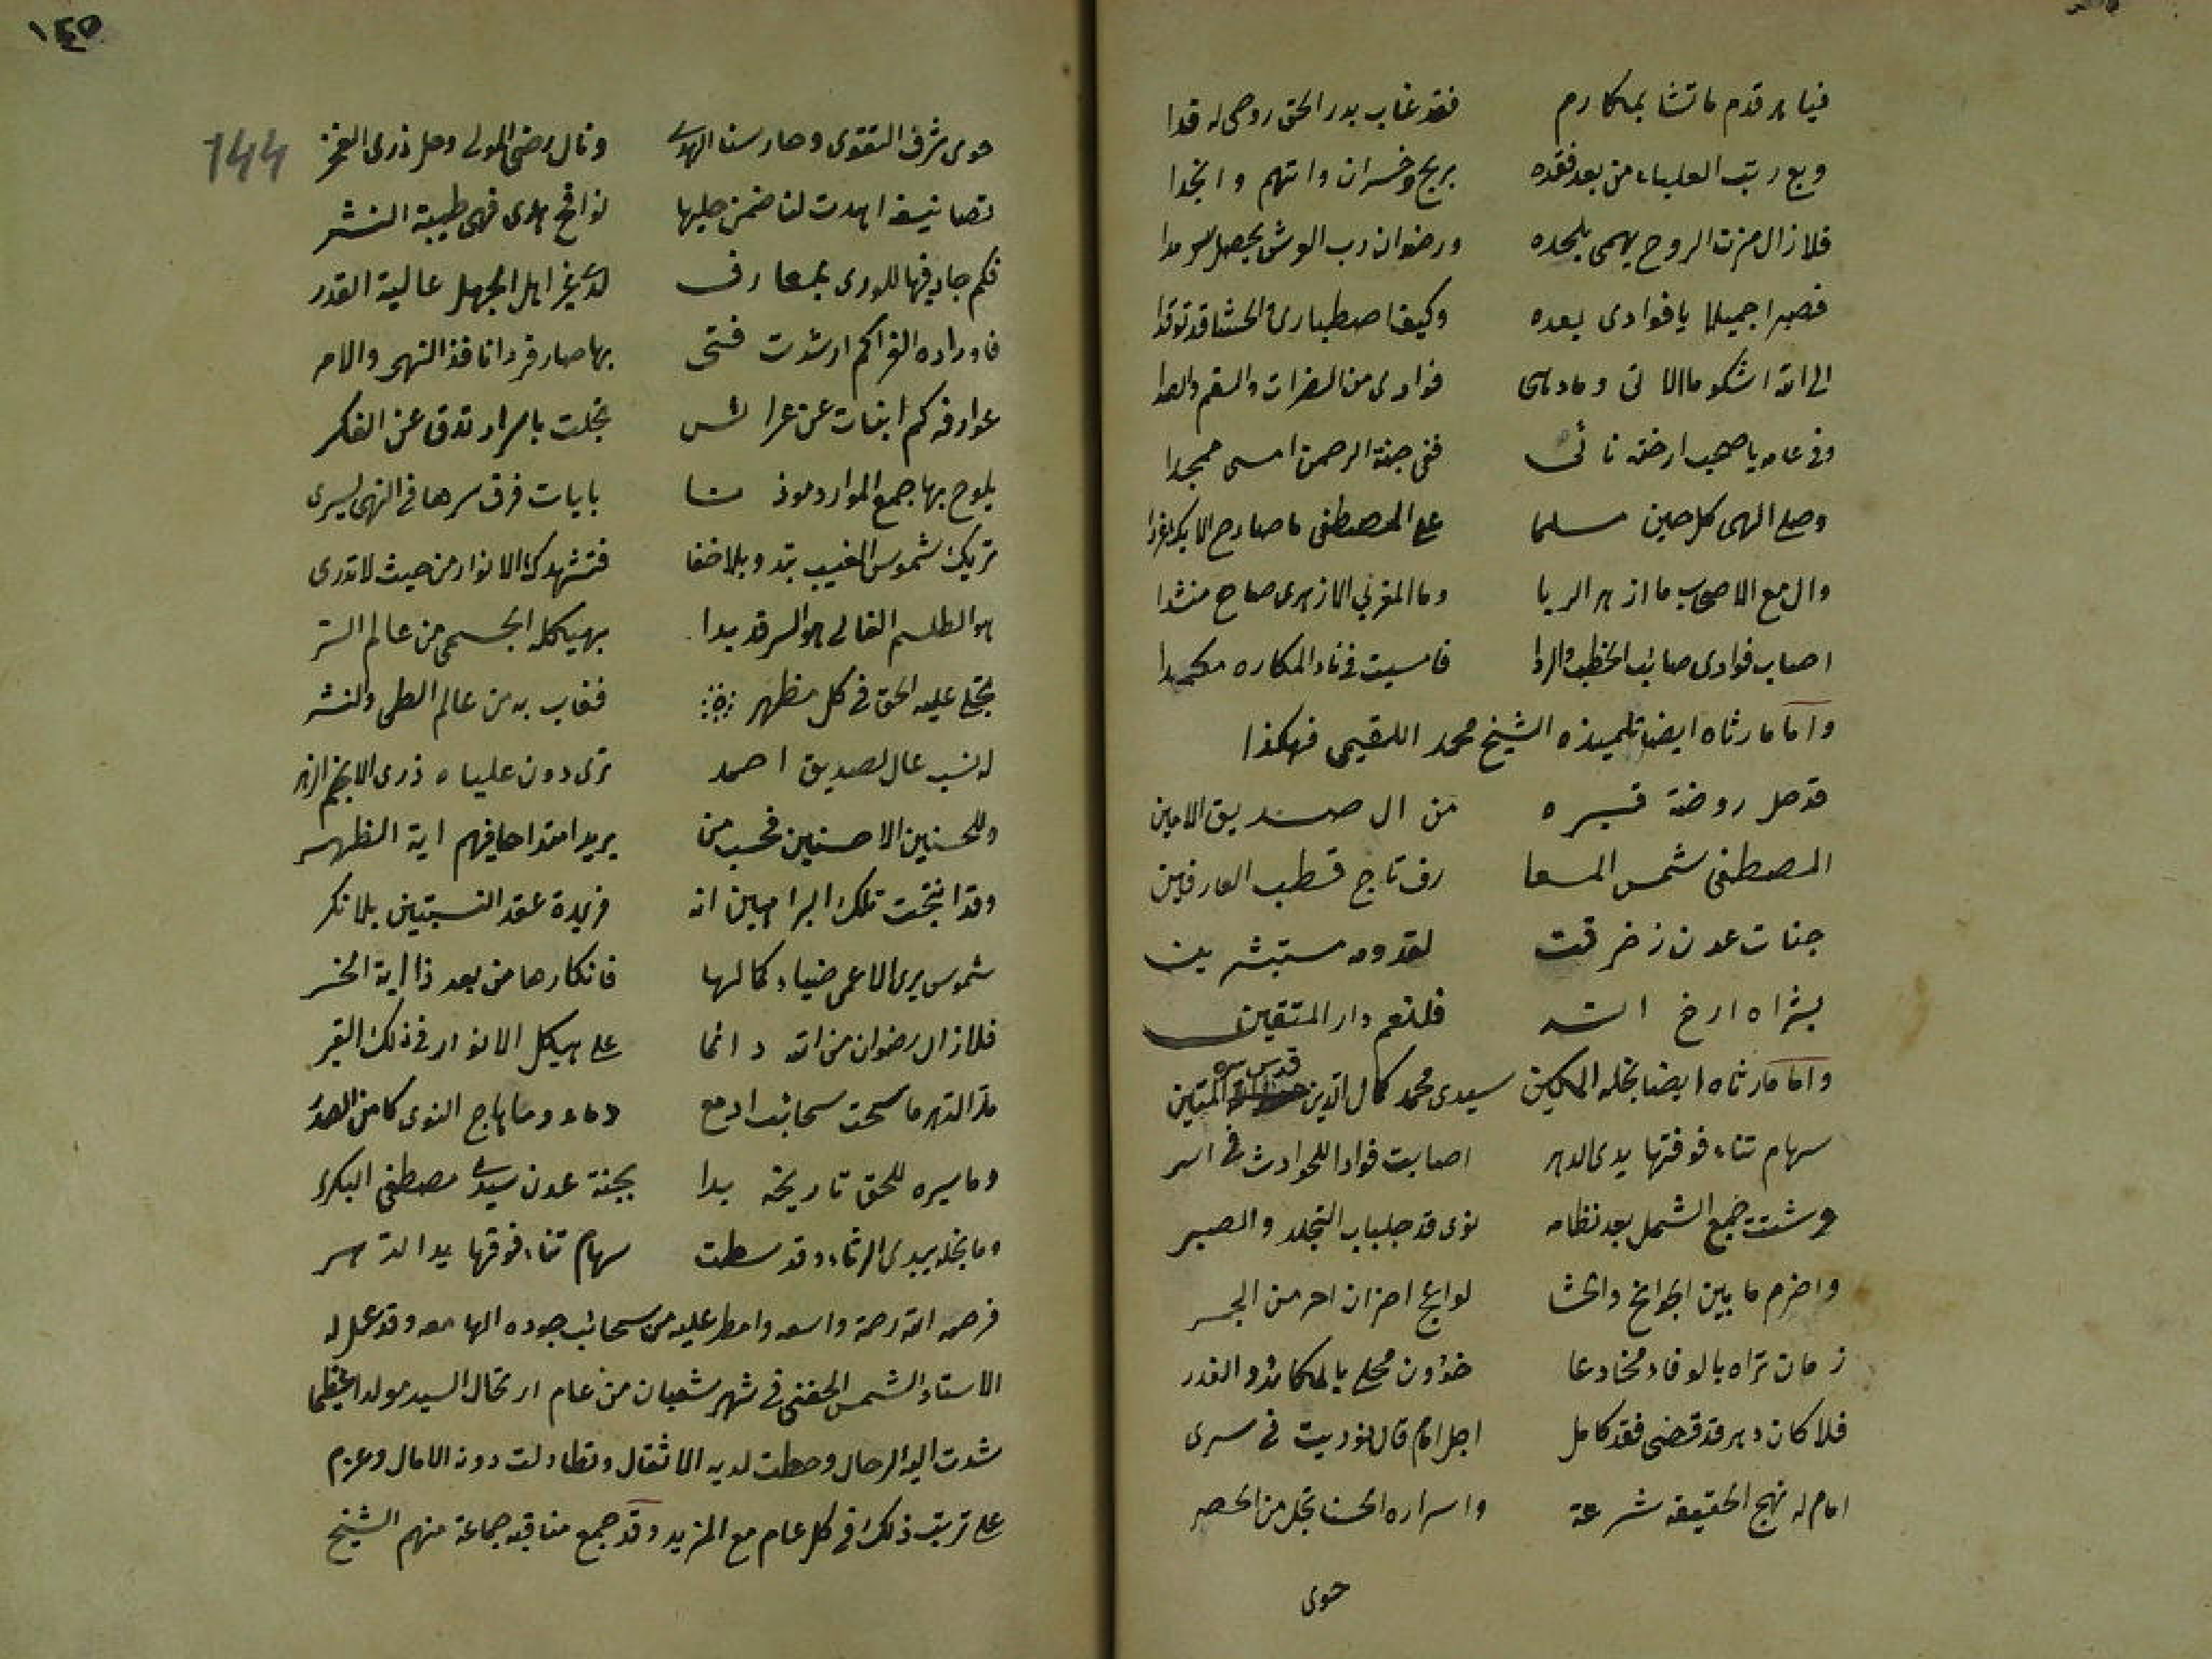 فيا دهر قدم ما تشا بمكارم فقد غاب بدر الحق روحي له فدا
وبع رتب العلياء من بعد فقده بربح وخسران واتهم وانجدا
فلا زال مزن الروح يهمي بلحده ورضوان رب العرش يحصل سرمدا
فصبرا جميلا يا فوادي لبعده وكيف اصطباري والحشا قد توقدا
الى الله اشكو ما الاقي ومادهى فوادي من الضرات والسقم والعدا
وفي عام يا صحب ارخته نأى ففي جنة الرحمن امسى ممجدا
وصلى الهي كل حين مسلما على المصطفى ما صادح الايك غردا
وال مع الاصحاب ما ازهر الربا وما المغربي الازهري صاح منشدا
اصاب فوادي صائب الخطب والردا فامسيت في نار المكاره مكمدا
واما ما رثاه ايضا تلميذه الشيخ محمد اللقيمي فهكذا
قد حل روضة قبره من ال صديق الامين
المصطفى شمس المعا رف تاج قطب العارفين
جنات عدن زخرفت لقدومه مستبشرين
بشراه ارخ انشد فلنعم دار المتقين
واما ما رثاه ايضا نجله المكين سيدي محمد كمال الدين قدس سره المتين
سهام تناء فوقتها يدى الدهر اصابت فوادا للحوادث في اسر
وشتت جمع الشمل بعد نظامه نوى قد جلباب التجلد والصبر
واضرم ما بين الجوانح والحشا لواعج احزان احر من الجمر
زمان تراه بالوفاء مخادعا خؤون محلى بالمكائد والغدر
فلا كان دهر قد قضى فقد كامل اجل امام قال نوديت في سري
امام له نهج الحقيقة شرعة واسراره الحسنا تجل من الحصر
حوى
١٤٥
144
حوى شرف التقوى وحاز سنا الهدى ونال رضى المولى وحل ذرى الفخر
تصانيفه اهدت لنا ضمن حليها نوافح هدى فهي طيبة النشر
فكم جاد فيها للورى بمعارف لدى غير اهل الجهل عالية القدر
فاوراده الغرا كم ارشدت فتى بها صار فردا نافذ النهي والامر
عوارفه كم ابنات عن عرائس تجلت باسرار تدق عن الفكر
يلوح بها جمع الموارد موذنا بايات فرق سرها في النهى يسري
تريك شموس الغيب تبدو بلا خفا فتشهدك الانوار من حيث لا تدري
هو الطلسم الغالي هو السر قد بدا بهيكله الجسمي من عالم الستر
تجلى عليه الحق في كل مظهر فغاب به من عالم الطي والنشر
له نسب عال لصديق احمد ترى دون علياه ذرى الانجم الزهر
وللحسنين الاحسنين فحسب من يريد امتداحا فيهم اية الظهر
وقد انتجت تلك البراهين انه فريدة عقد النسبتين بلا نكر
شموس يرى الاعمى ضياء كمالها فانكارها من بعد ذا اية الخسر
فلا زال رضوان من الله دائما على هيكل الانوار في ذلك القبر
مدى الدهر ما سحت سحائب ادمع دماء وما هاج النوى كامن الصدر
وما سيره للحق تاريخه بدا بجنة عدن سيدي مصطفى البكري
وما نجله يبدي الرثاء وقد سطت سهام تناء فوقها يد الدهر
فرحمه الله رحمة واسعه وامطر عليه من سحائب جوده الهامعه وقد عمل له
الاستاذ الشمس الحفني في شهر شعبان من عام ارتحال السيد مولدا عظيما
شدت اليه الرحال وحطت لديه الاثقال وتطاولت دونه الامال وعزم
على ترتيب ذلك في كل عام مع المزيد وقد جمع مناقبه جماعة منهم الشيخ